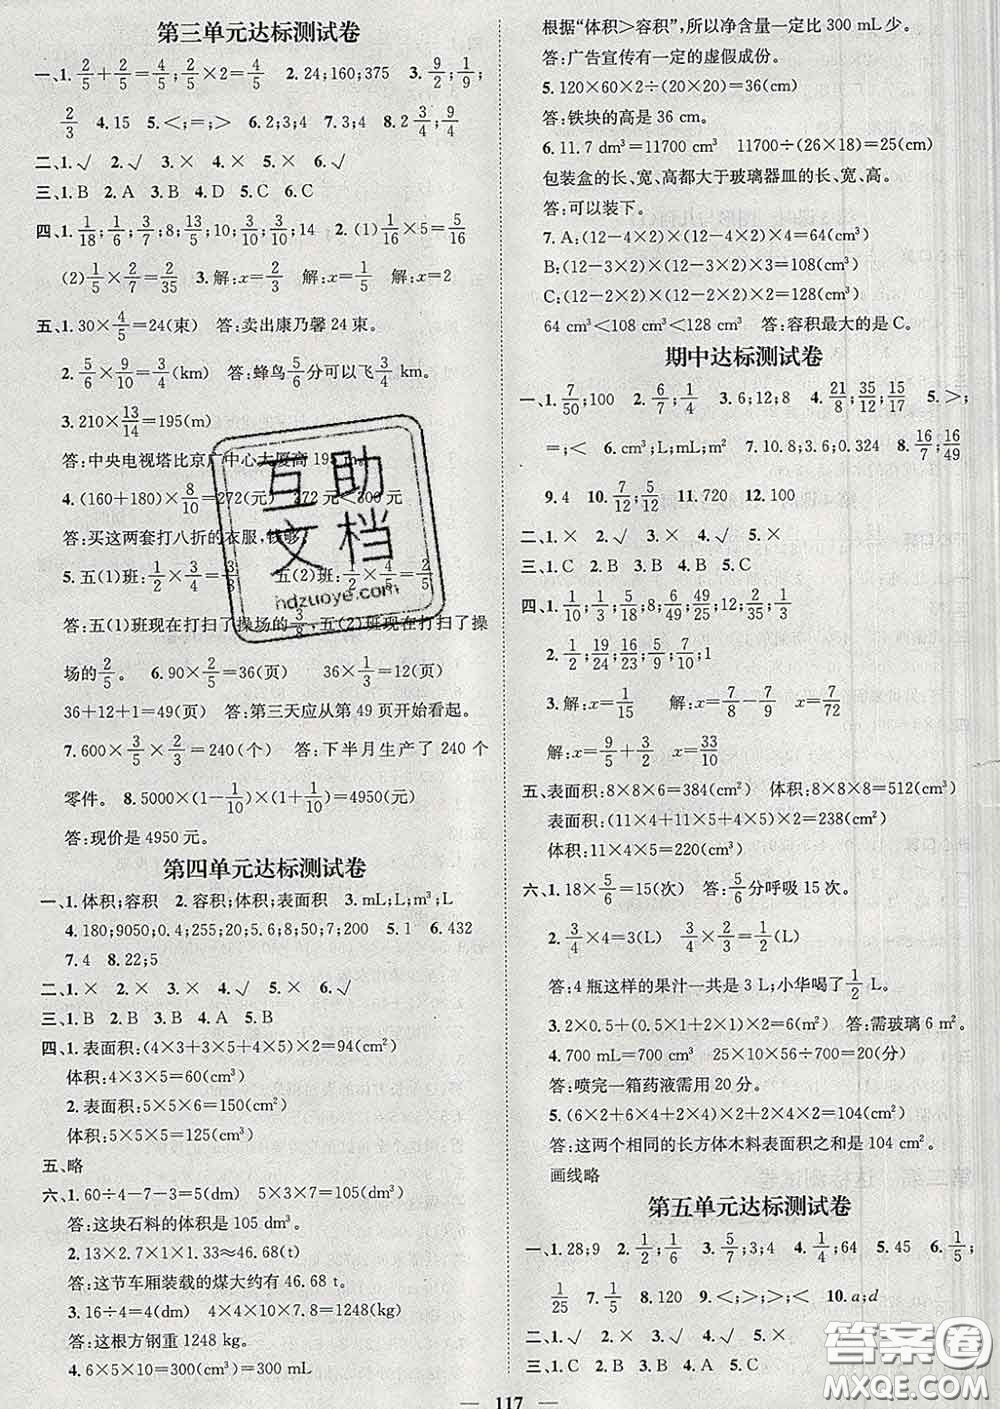 第三单元达标测试卷
一、1. 2/5+2/5=4/5;2/5×2=4/5 2. 24;160;375 3. 9/2;1/9;
2/3 4. 15 5. <;=;> 6. 2;3;4 7. 3;4 8. 2 3/4;9/4
二、1. √ 2. √ 3. × 4. × 5. × 6. √
三、1. B 2. A 3. B 4. D 5. A 6. C
四、1. 1/18;1/6;1/7;8;13/5;10;3/10;3/10;14 2. (1) 1/16×5=5/16
(2) 1/5×2/7=2/35 3. 解:x=2/5 解:x=1/2 解:x=2
五、1. 30×4/5=24(束) 答:卖出康乃馨 24 束。
2. 5/6×9/10=3/4(km) 答:蜂鸟5/6分可以飞3/4 km。
3. 210×13/14=195(m)
答:中央电视塔比京广中心大厦高 195 m。
4. (160+180)×8/10=272(元) 272 元<300 元
答:买这两套打八折的衣服,钱够。
5. 五(1)班:1/2×3/4=3/8 五(2)班:1/2×4/5=2/5
答:五(1)班现在打扫了操场的3/8,五(2)班现在打扫了操
场的2/5。 6. 90×2/5=36(页) 36×1/3=12(页)
36+12+1=49(页) 答:第三天应从第 49 页开始看起。
7. 600×3/5×2/3=240(个) 答:下半月生产了 240 个
零件。 8. 5000×(1-1/10)×(1+1/10)=4950(元)
答:现价是 4950 元。
第四单元达标测试卷
一、1. 体积;容积 2. 容积;体积;表面积 3. mL;L;m³;L
4. 180;9050;0.4;255;20;5.6;8;50;7;200 5. 1 6. 432
7. 4 8. 22;5
二、1. × 2. × 3. × 4. √ 5. × 6. √
三、1. B 2. B 3. B 4. A 5. B
四、1. 表面积:(4×3+3×5+4×5)×2=94(cm²)
体积:4×3×5=60(cm³)
2. 表面积:5×5×6=150(cm²)
体积:5×5×5=125(cm³)
五、略
六、1. 60÷4-7-3=5(dm) 5×3×7=105(dm³)
答:这块石料的体积是 105 dm³。
2. 13×2.7×1×1.33≈46.68(t)
答:这节车厢装载的煤大约有 46.68 t。
3. 16÷4=4(dm) 4×4×10×7.8=1248(kg)
答:这根方钢重 1248 kg。
4. 6×5×10=300(cm³)=300 mL
根据“体积>容积”,所以净含量一定比 300 mL 少。
答:广告宣传有一定的虚假成份。
5. 120×60×2÷(20×20)=36(cm)
答:铁块的高是 36 cm。
6. 11.7 dm³=11700 cm³ 11700÷(26×18)=25(cm)
包装盒的长、宽、高都大于玻璃器皿的长、宽、高。
答:可以装下。
7. A:(12-4×2)×(12-4×2)×4=64(cm³)
B:(12-3×2)×(12-3×2)×3=108(cm³)
C:(12-2×2)×(12-2×2)×2=128(cm³)
64 cm³<108 cm³<128 cm³ 答:容积最大的是 C。
期中达标测试卷
一、1. 7/50;100 2. 6/7;1/4 3. 6;12;8 4. 21/8;35/12;15/17 5. >;
=;< 6. cm³;L;mL;m² 7. 10.8;3.6;0.324 8. 16/7;16/49
9. 4 10. 7/12;5/12 11. 720 12. 100
二、1. × 2. √ 3. × 4. √ 5. ×
三、1. C 2. B 3. C 4. B 5. C
四、1. 1/10;3/10;5/18;8;6/49;25/12;12;3/10;1/3
2. 1/2;19/24;16/23;13/50;9/7;1
3. 解:x=1/15 解:x=7/8-7/9 x=7/72
解:x=9/5+3/2 x=33/10
五、表面积:8×8×6=384(cm²) 体积:8×8×8=512(cm³)
表面积:(11×4+11×5+4×5)×2=238(cm²)
体积:11×4×5=220(cm³)
六、1. 18×5/6=15(次) 答:5/6分呼吸 15 次。
2. 3/4×4=3(L) 3/4×2/3=1/2(L)
答:4 瓶这样的果汁一共是 3 L,小华喝了1/2 L。
3. 2×0.5+(0.5×1+2×1)×2=6(m²) 答:需玻璃 6 m²。
4. 700 mL=700 cm³ 25×10×56÷700=20(分)
答:喷完一箱药液需用 20 分。
5. (6×2+6×4+2×4)×2+2×4×2=104(cm²)
答:这两个相同的长方体木料表面积之和是 104 cm²。
画线略
第五单元达标测试卷
一、1. 28;9 2. 1/2;1/6 3. 5/7;3;4 4. 1/4;64 5. 45 6. 1/5;
1/25 7. 1/5 8. 120 9. <;>;>;< 10. a;d
二、1. √ 2. × 3. √ 4. × 5. ×
三、1. C 2. B 3. A 4. B 5. C
117
互助文档
hdzuoye.com
答案圈
MXQE.COM